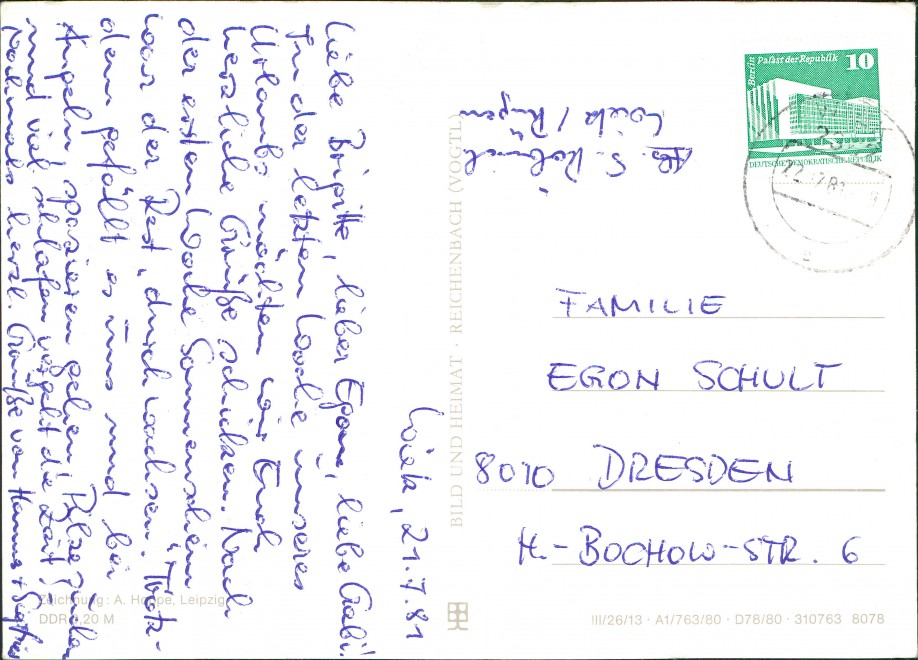 Wiek, 21.7.81
Liebe Brigitte, lieber Egon, liebe Gabi!
In der letzten Woche unseres
Urlaubs möchten wir Euch
herzliche Grüße schicken. Nach
der ersten Woche Sonnenschein
war der Rest "durchwachsen". Trotz-
dem gefällt es uns und bei
Angeln, spazieren gehen, Pilze suchen
und viel schlafen vergeht die Zeit!
Nochmals herzl. Grüße von Hanna + Siegfried
Abs. S.
Wiek / Rügen
Berlin Palast der Republik 10
DEUTSCHE DEMOKRATISCHE REPUBLIK
FAMILIE
EGON SCHULT
8010 DRESDEN
H.-BOCHOW-STR. 6
BILD UND HEIMAT · REICHENBACH (VOGTL)
Zeichnung: A. Hoppe, Leipzig
DDR 0,20 M
III/26/13 · A1/763/80 · D78/80 · 310763 8078